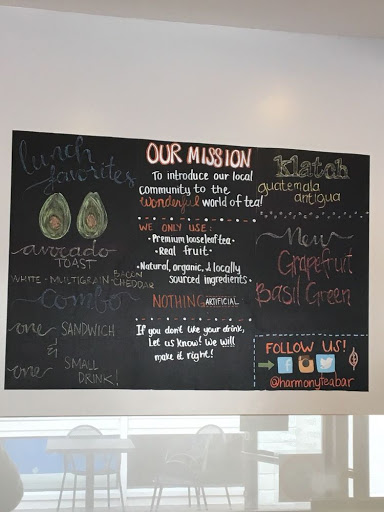 lunch
favorites
avocado
TOAST
WHITE - MULTIGRAIN - BACON CHEDDAR
combo
one SANDWICH
&
one SMALL
DRINK!
OUR MISSION
To introduce our local
community to the
wonderful world of tea!
WE ONLY USE:
• Premium loose leaf tea •
• Real fruit •
• Natural, organic, & locally
sourced ingredients •
NOTHING ARTIFICIAL
If you don't like your drink,
let us know! We will
make it right!
Klatch
guatemala
antigua
New
Grapefruit
Basil Green
FOLLOW US!
f
@harmonyteabar